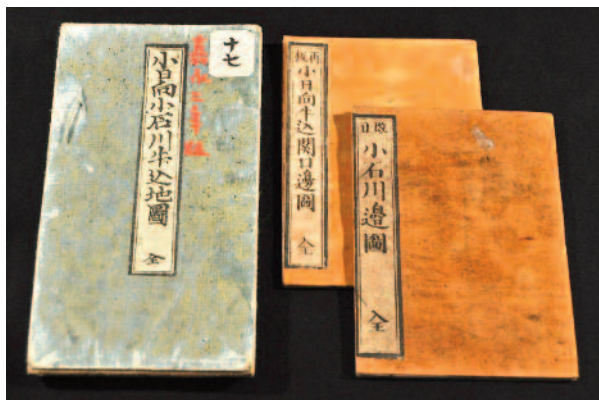 十七
小日向小石川牛込地圖
全
再板
小日向牛込関口邊圖
全
小石川邊圖
全